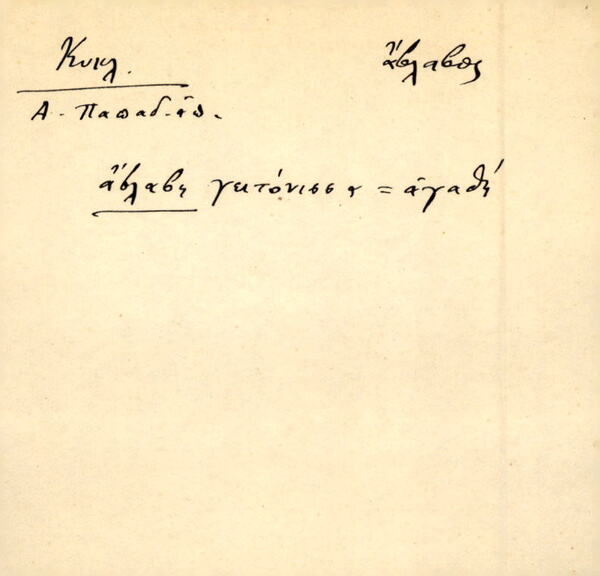 Κυκλ. ἄβλαβος
Α. Παπαδ-όπ.
ἄβλαβη γειτόνισσα = ἀγαθή